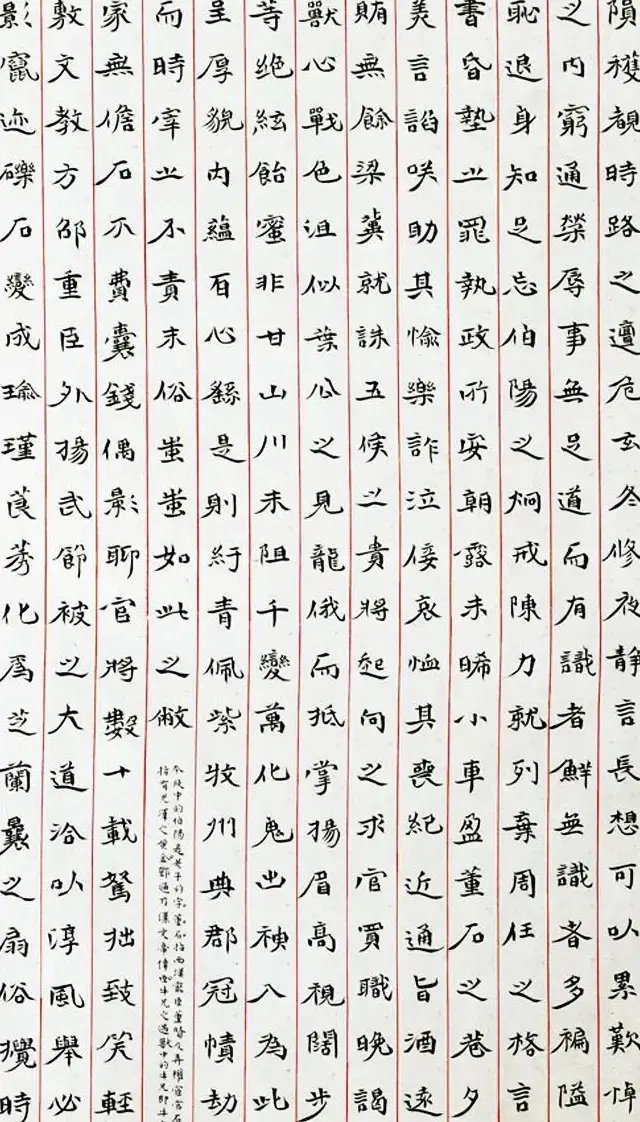 隕穫覩時路之邅危玄冬修夜靜言長想可以累歎悼
之內窮通榮辱事無足道而有識者鮮無識者多褊隘
恥退身知足忘伯陽之炯戒陳力就列棄周任之格言
書昏墊之罪執政所妥朝露未晞小車盈董石之巷夕
美言諂咲助其愉樂詐泣佞哀恤其喪紀近通旨酒遠
賄無餘梁冀就誅五侯之貴將起向之求官買職晚謁
獸心戰色沮似葉公之見龍俄而抵掌揚眉高視闊步
等绝絃飴蜜非甘山川未阻千變萬化鬼出神入為此
呈厚貌內蘊百心繇是則紆青佩紫牧州典郡冠幘劫
而時宰之不責末俗蚩蚩如此之敝
段中的伯陽是老子的字董石指西漢寵臣董賢
家無儋石不費囊錢偶影聊官將數十載駑拙致笑輕
敷文教方邵重臣外揚武節被之大道洽以淳風舉必
影竄迹礫石變成瑜瑾莨莠化爲芝蘭曩之扇俗攪時